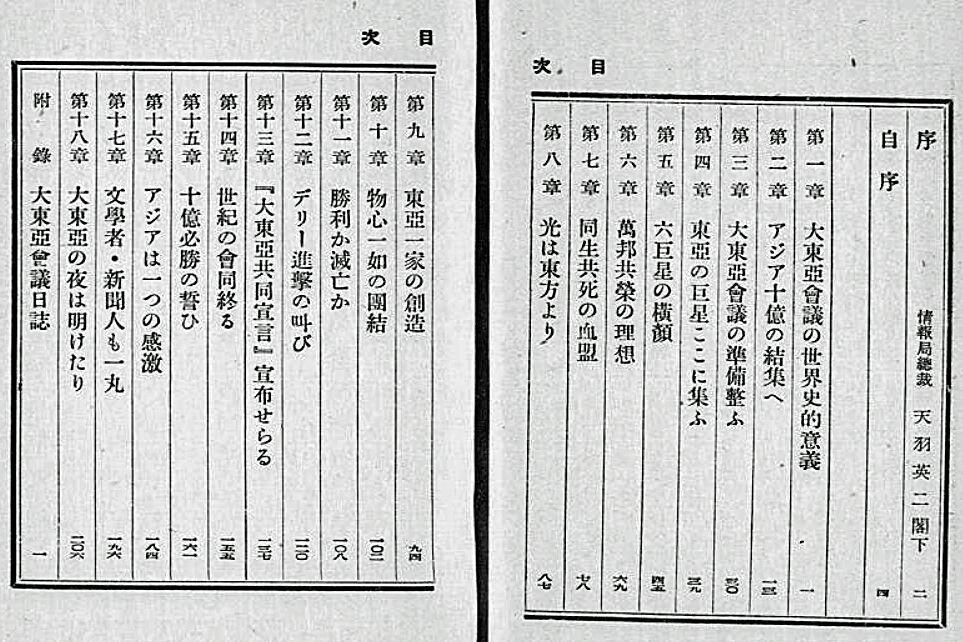 目次
序 情報局總裁 天羽英二閣下 二
自序 四
第一章 大東亞會議の世界史的意義 一
第二章 アジア十億の結集へ 一三
第三章 大東亞會議の準備整ふ 三〇
第四章 東亞の巨星ここに集ふ 三九
第五章 六巨星の横顏 四五
第六章 萬邦共榮の理想 六九
第七章 同生共死の血盟 七八
第八章 光は東方より 八七
目次
第九章 東亞一家の創造 九四
第十章 物心一如の團結 一〇二
第十一章 勝利か滅亡か 一〇八
第十二章 デリー進擊の叫び 一二〇
第十三章 『大東亞共同宣言』宣布せらる 一三七
第十四章 世紀の會同終る 一五五
第十五章 十億必勝の誓ひ 一六一
第十六章 アジアは一つの感激 一八四
第十七章 文學者・新聞人も一丸 一九六
第十八章 大東亞の夜は明けたり 二〇六
附錄 大東亞會議日誌 一